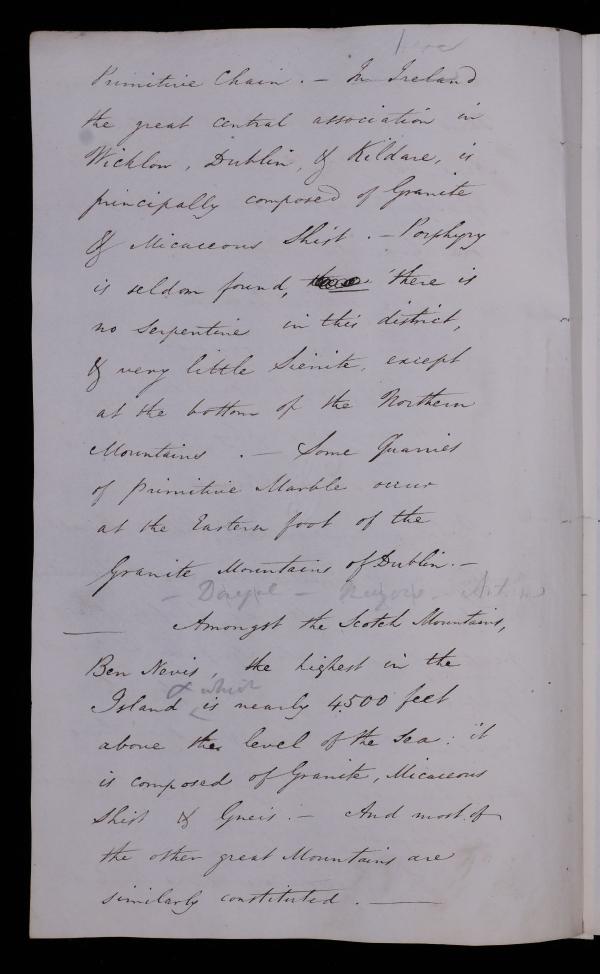 Primitive Chain. — In Ireland
the great central association in
Wicklow, Dublin, & Kildare, is
principally composed of Granite
& Micaceous Shist. — Porphyry
is seldom found, there is
no Serpentine in this district,
& very little Sienite, except
at the bottom of the Northern
Mountains. — Some Quarries
of primitive Marble occur
at the Eastern foot of the
Granite Mountains of Dublin. —
— Donegal —
Amongst the Scotch Mountains,
Ben Nevis, the highest in the
& which
Island is nearly 4500 feet
above the level of the Sea: it
is composed of Granite, Micaceous
Shist & Gneis. — And most of
the other great Mountains are
similarly constituted. —